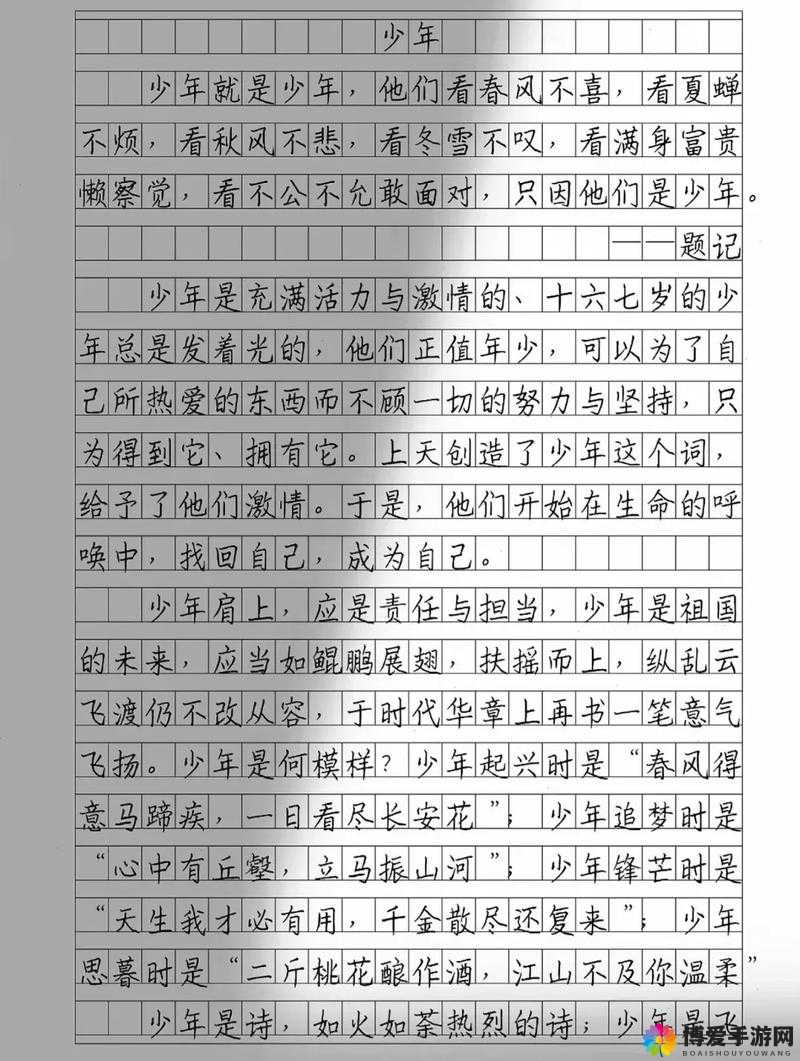 少年
少年就是少年，他们看春风不喜，看夏蝉
不烦，看秋风不悲，看冬雪不叹，看满身富贵
懒察觉，看不公不允敢面对，只因他们是少年。
——题记
少年是充满活力与激情的、十六七岁的少
年总是发着光的，他们正值年少，可以为了自
己所热爱的东西而不顾一切的努力与坚持，只
为得到它、拥有它。上天创造了少年这个词，
给予了他们激情。于是，他们开始在生命的呼
唤中，找回自己，成为自己。
少年肩上，应是责任与担当，少年是祖国
的未来，应当如鲲鹏展翅，扶摇而上，纵乱云
飞渡仍不改从容，于时代华章上再书一笔意气
飞扬。少年是何模样？少年起兴时是“春风得
意马蹄疾，一日看尽长安花”；少年追梦时是
“心中有丘壑，立马振山河”；少年锋芒时是
“天生我才必有用，千金散尽还复来”；少年
思暮时是“二斤桃花酿作酒，江山不及你温柔”
少年是诗，如火如荼热烈的诗；少年是飞
博爱手游网
BOAISHOUYOUWANG